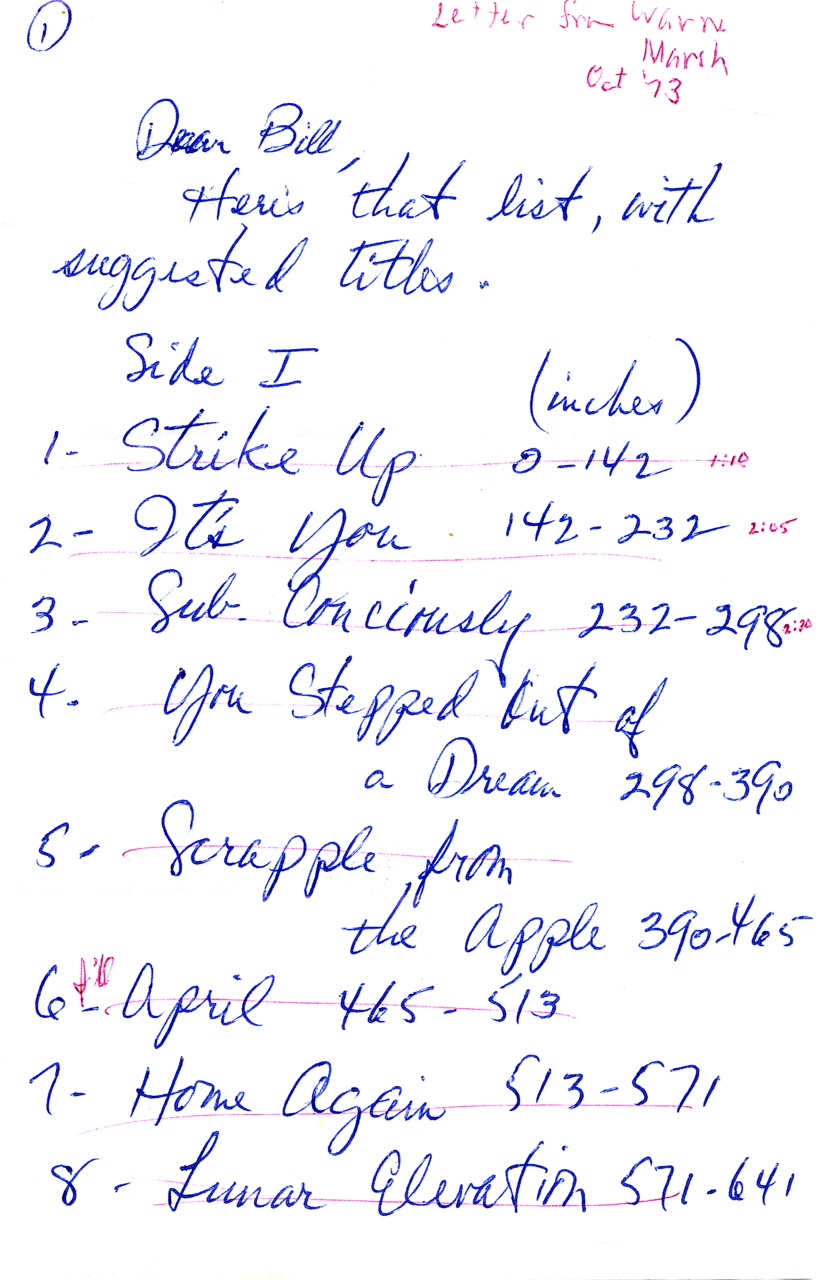 ①
Letter from Warne
Marsh
Oct '73
Dear Bill,
Here's that list, with
suggested titles.
Side I (inches)
1- Strike Up 0-142 1:10
2- It's You 142-232 2:05
3- Sub-Conciously 232-298 2:30
4. You Stepped Out of
a Dream 298-390
5- Scrapple from
the Apple 390-465
6- April 465-513
7- Home Again 513-571
8- Lunar Elevation 571-641